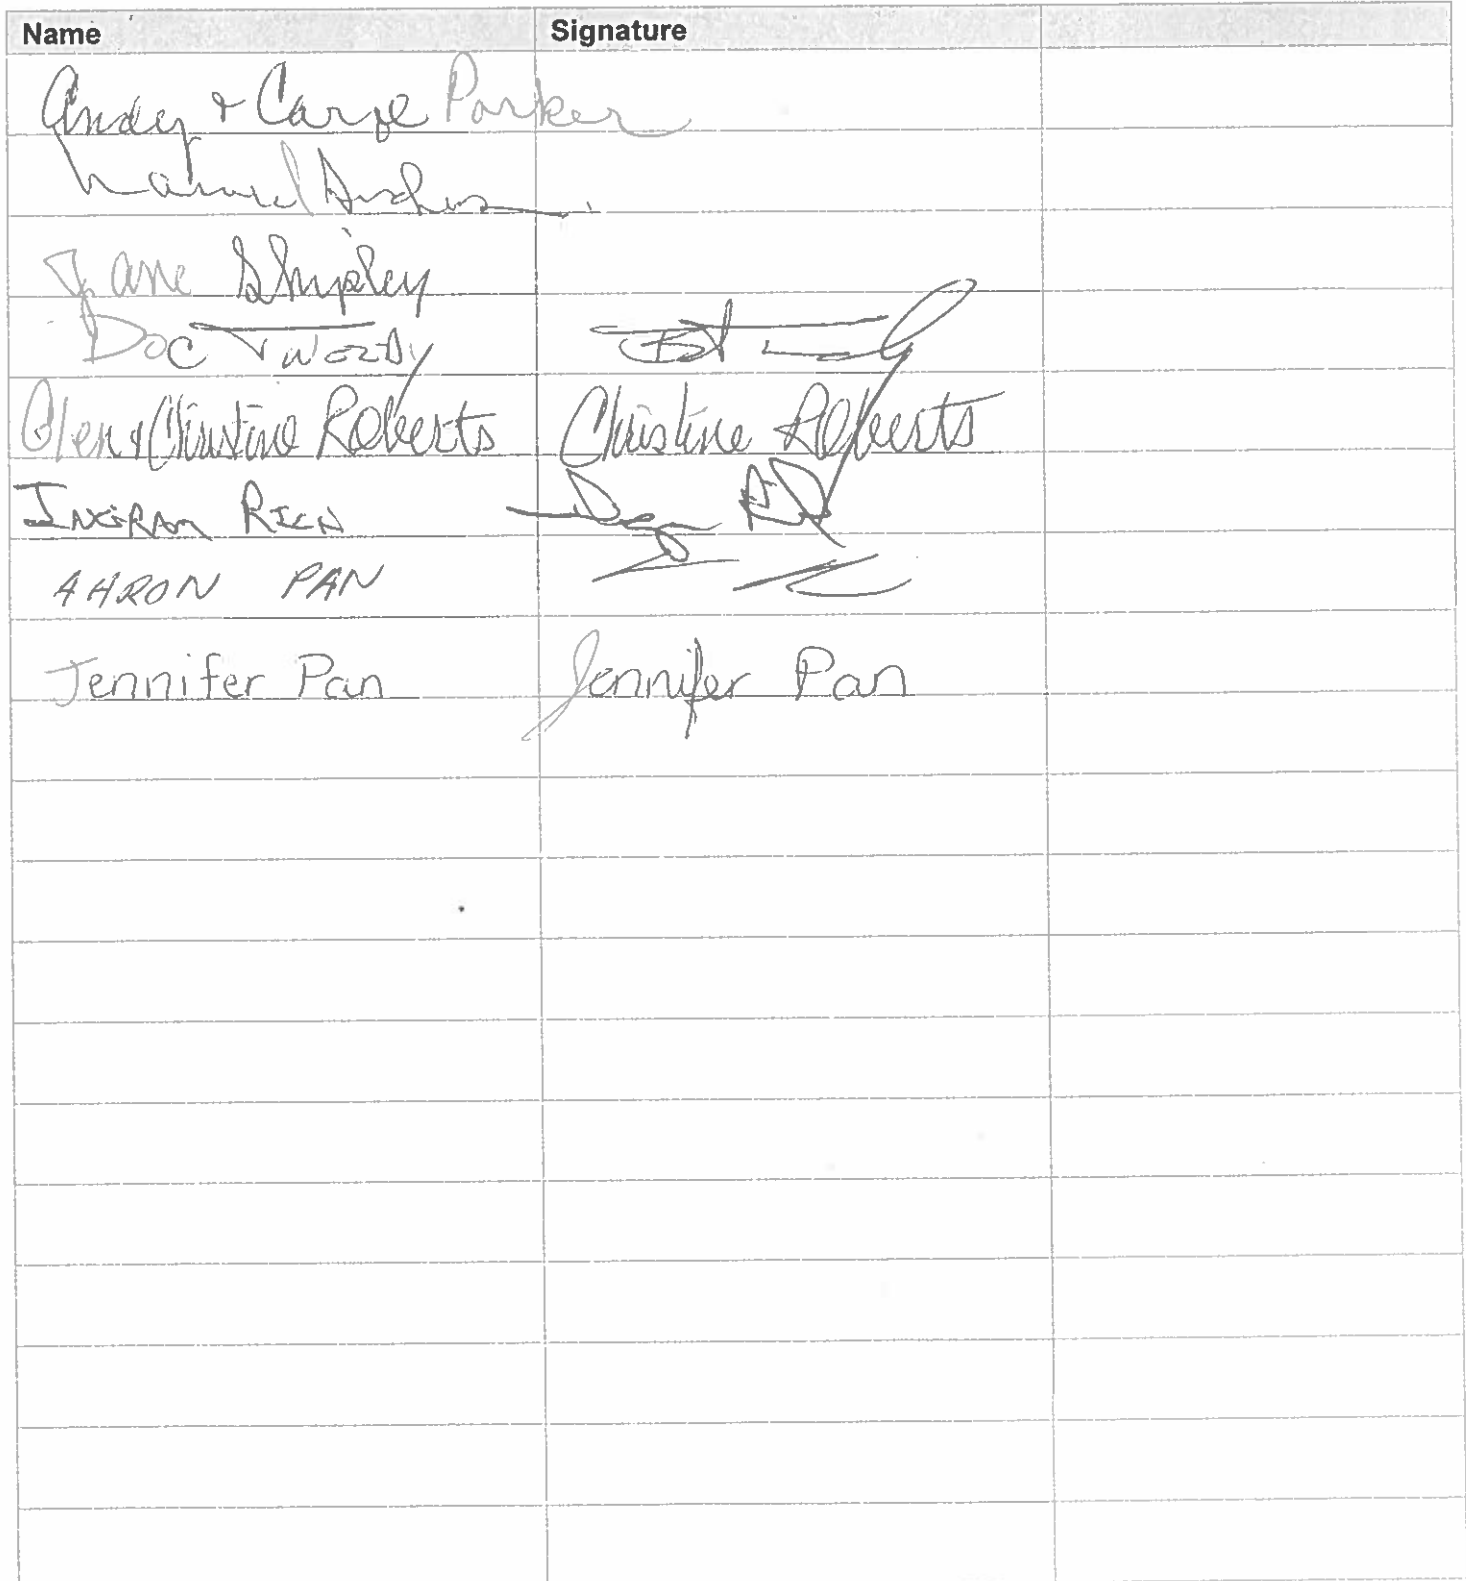 Name Signature
Andy & Carole Parker
Jane Shipley
Doc Twordy
Glen & Christine Roberts Christine Roberts
Ingram Rich
AARON PAN
Jennifer Pan Jennifer Pan